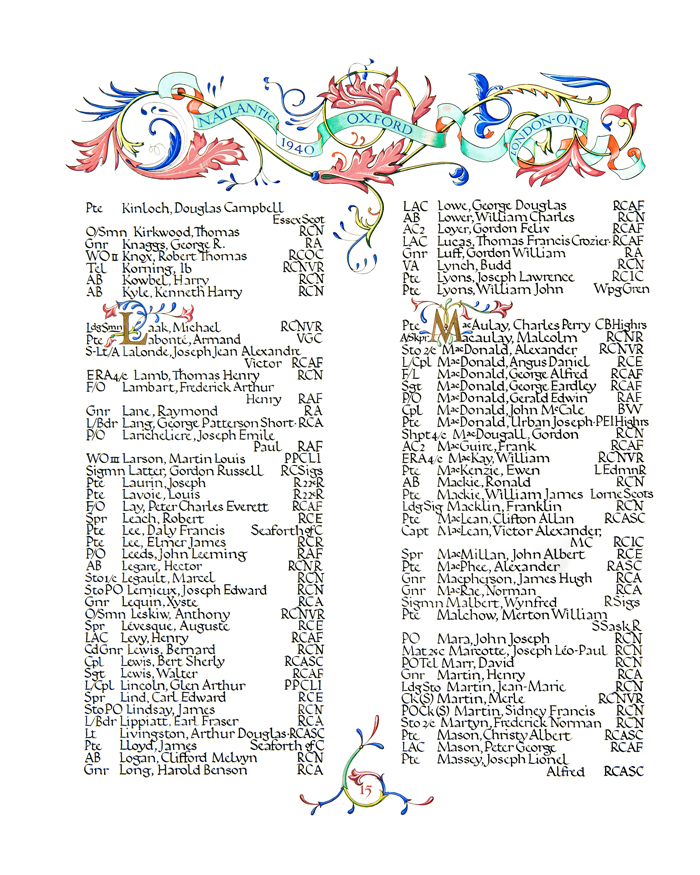 N·ATLANTIC
1940
OXFORD
LONDON-ONT
Pte Kinloch, Douglas Campbell
Essex Scot
O/Smn Kirkwood, Thomas RCN
Gnr Knaggs, George R. RA
WO II Knox, Robert Thomas RCOC
Tel Korning, Ib RCNVR
AB Kowbel, Harry RCN
AB Kyle, Kenneth Harry RCN
LdgSmn Laak, Michael RCNVR
Pte Labonté, Armand VGC
S-Lt/A Lalonde, Joseph Jean Alexandre
Victor RCAF
ERA4/c Lamb, Thomas Henry RCN
F/O Lambart, Frederick Arthur
Henry RAF
Gnr Lane, Raymond RA
L/Bdr Lang, George Patterson Short · RCA
P/O Larichelière, Joseph Emile
Paul RAF
WO III Larson, Martin Louis PPCLI
Sigmn Latter, Gordon Russell RCSigs
Pte Laurin, Joseph R22eR
Pte Lavoie, Louis R22eR
F/O Lay, Peter Charles Everett RCAF
Spr Leach, Robert RCE
Pte Lee, Daly Francis Seaforth of C
Pte Lee, Elmer James RCR
P/O Leeds, John Leeming RAF
AB Legare, Hector RCNR
Sto1/c Legault, Marcel RCN
StoPO Lemieux, Joseph Edward RCN
Gnr Lequin, Xyste RCA
O/Smn Leskiw, Anthony RCNVR
Spr Lévesque, Auguste RCE
LAC Levy, Henry RCAF
CdGnr Lewis, Bernard RCN
Cpl Lewis, Bert Sherly RCASC
Sgt Lewis, Walter RCAF
L/Cpl Lincoln, Glen Arthur PPCLI
Spr Lind, Carl Edward RCE
StoPO Lindsay, James RCN
L/Bdr Lippiatt, Earl Fraser RCA
Lt Livingston, Arthur Douglas · RCASC
Pte Lloyd, James Seaforth of C
AB Logan, Clifford Melvyn RCN
Gnr Long, Harold Benson RCA
LAC Lowe, George Douglas RCAF
AB Lower, William Charles RCN
AC2 Loyer, Gordon Felix RCAF
LAC Lucas, Thomas Francis Crozier · RCAF
Gnr Luff, Gordon William RA
VA Lynch, Budd RCN
Pte Lyons, Joseph Lawrence RCIC
Pte Lyons, William John WpgGren
Pte MacAulay, Charles Perry CBHighrs
A/Skpr Macaulay, Malcolm RCNR
Sto 2/c MacDonald, Alexander RCNVR
L/Cpl MacDonald, Angus Daniel RCE
F/L MacDonald, George Alfred RCAF
Sgt MacDonald, George Eardley RCAF
P/O MacDonald, Gerald Edwin RAF
Cpl MacDonald, John McCale BW
Pte MacDonald, Urban Joseph · PEIHighrs
Shpt4/c MacDougall, Gordon RCN
AC2 MacGuire, Frank RCAF
ERA4/c MacKay, William RCNVR
Pte MacKenzie, Ewen LEdmnR
AB Mackie, Ronald RCN
Pte Mackie, William James LorneScots
LdgSig Macklin, Franklin RCN
Pte MacLean, Clifton Allan RCASC
Capt MacLean, Victor Alexander,
MC RCIC
Spr MacMillan, John Albert RCE
Pte MacPhee, Alexander RASC
Gnr Macpherson, James Hugh RCA
Gnr MacRae, Norman RCA
Sigmn Malbert, Wynfred RSigs
Pte Malchow, Merton William
SSaskR
PO Mara, John Joseph RCN
Mat 2/c Marcotte, Joseph Léo-Paul RCN
POTel Marr, David RCN
Gnr Martin, Henry RCA
LdgSto Martin, Jean-Marie RCN
Ck(S) Martin, Merle RCNVR
POCk(S) Martin, Sidney Francis RCN
Sto 2/c Martyn, Frederick Norman RCN
Pte Mason, Christy Albert RCASC
LAC Mason, Peter George RCAF
Pte Massey, Joseph Lionel
Alfred RCASC
15